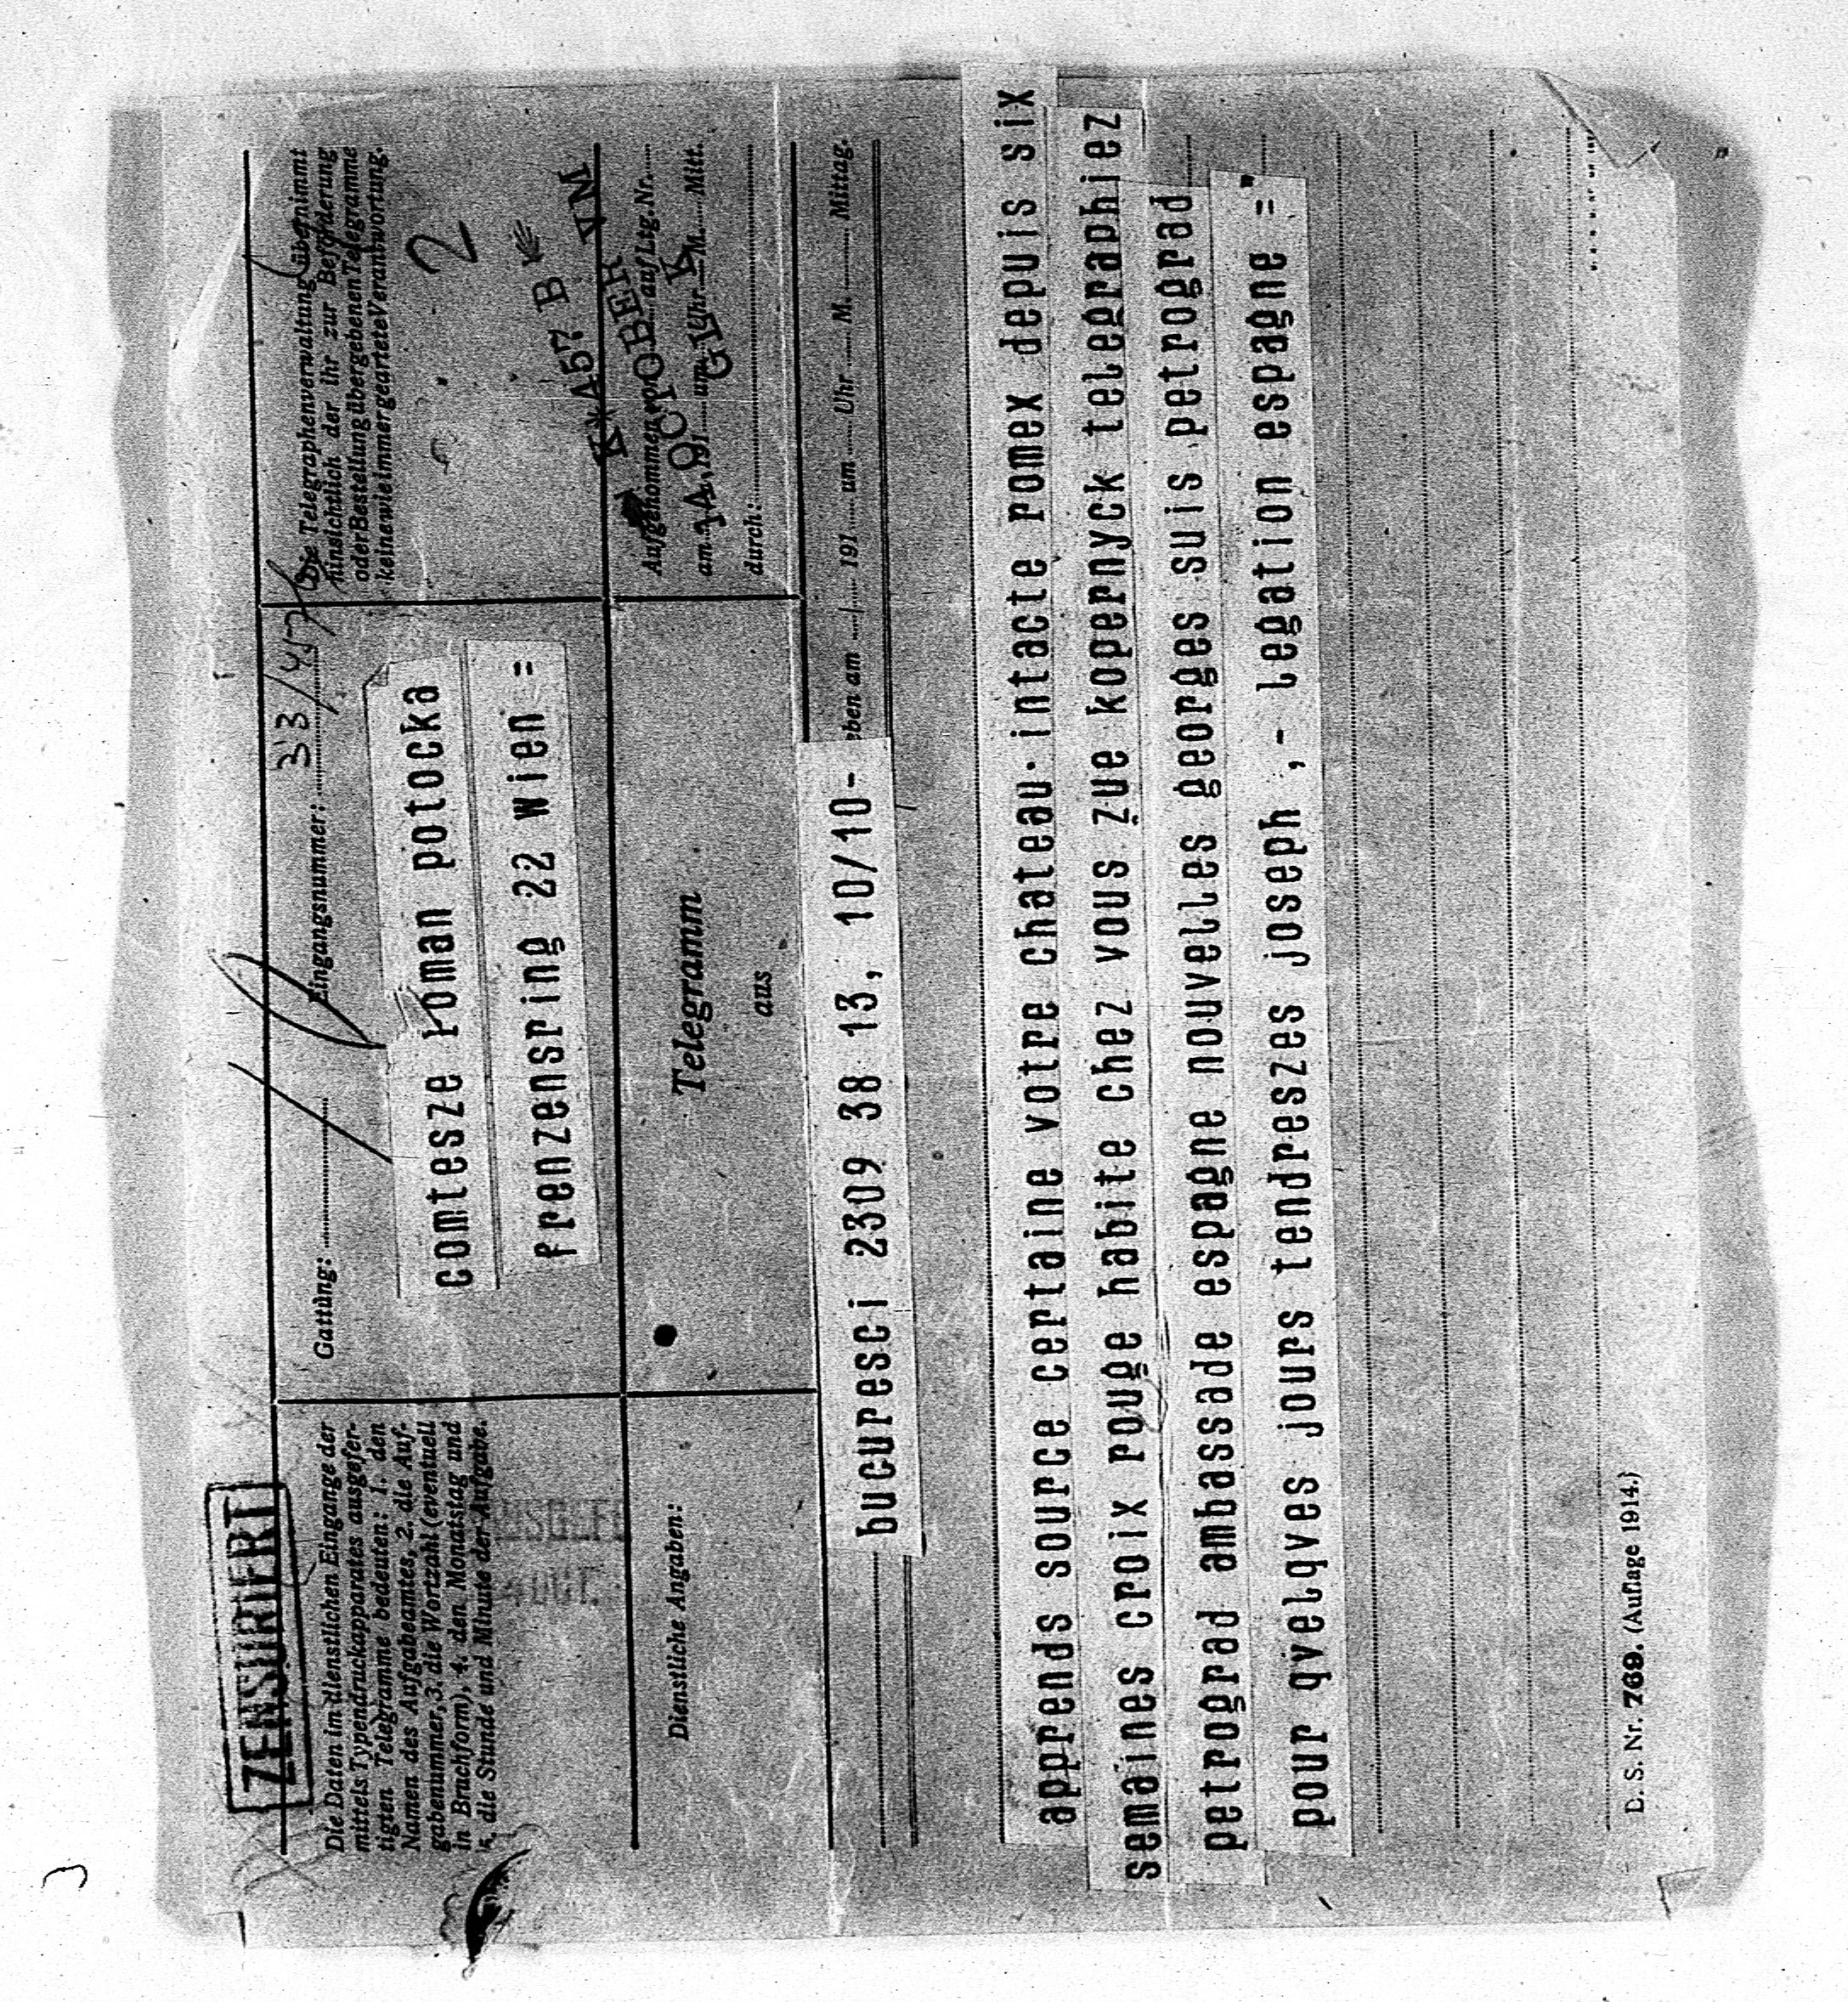 ZENSURIERT
Die Daten im dienstlichen Eingange der
mittels Typendruckapparates ausgefer-
tigten Telegramme bedeuten: 1. den
Namen des Aufgabeamtes, 2. die Auf-
gabenummer, 3. die Wortzahl (eventuell
in Bruchform), 4. den Monatstag und
5. die Stunde und Minute der Aufgabe.
Gattung:
Eingangsnummer:
33/457/6
comtesze roman potocka
frenzensring 22 wien =
Die Telegraphenverwaltung übernimmt
hinsichtlich der ihr zur Beförderung
oder Bestellung übergebenen Telegramme
keine wie immer geartete Verantwortung.
2
A57 B
Dienstliche Angaben:
Telegramm
aus
Aufgenommen von auf Ltg. Nr.
am 14. 191 um Uhr M. Mitt.
durch:
OCTOBER
bucuresci 2309 38 13, 10/10-
eben am / 191 um Uhr M. Mittag.
apprends source certaine votre chateau.intacte romex depuis six
semaines croix rouge habite chez vous zue kopernyck telegraphiez
petrograd ambassade espagne nouvelles georges suis petrograd
pour qvelqves jours tendreszes joseph ,- legation espagne ="
D. S. Nr. 769. (Auflage 1914.)